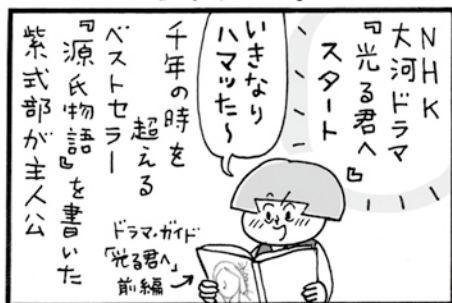 NHK
大河ドラマ
『光る君へ』
スタート
いきなり
ハマッた〜
千年の時を
超える
ベストセラー
『源氏物語』を書いた
紫式部が主人公
ドラマ・ガイド
「光る君へ」
前編